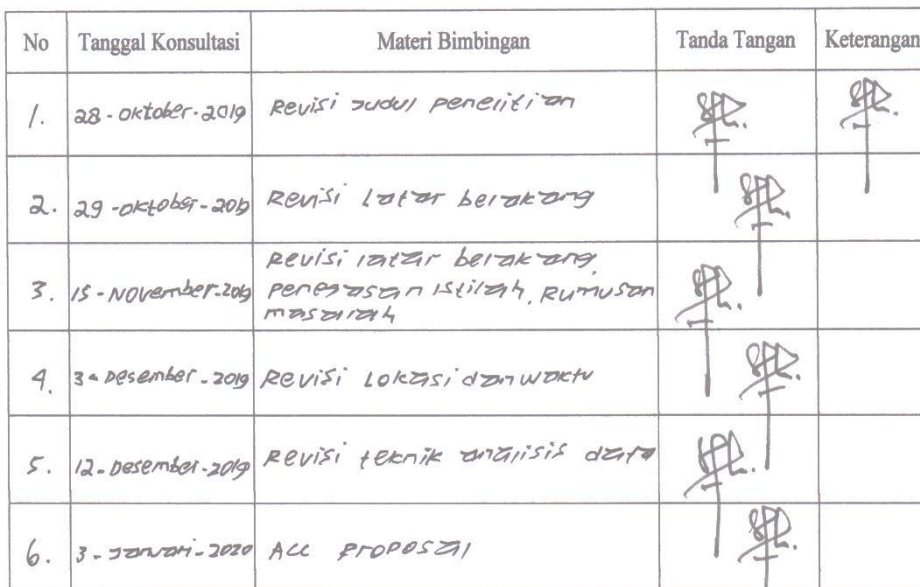 No Tanggal Konsultasi Materi Bimbingan Tanda Tangan Keterangan
1. 28 - Oktober - 2019 Revisi Judul penelitian
2. 29 - Oktober - 2019 Revisi Latar belakang
Revisi latar belakang,
3. 15 - November - 2019 penegasan istilah, Rumusan
masalah
4. 3 - Desember - 2019 Revisi Lokasi dan waktu
5. 12 - Desember - 2019 Revisi teknik analisis data
6. 3 - Januari - 2020 ACC proposal